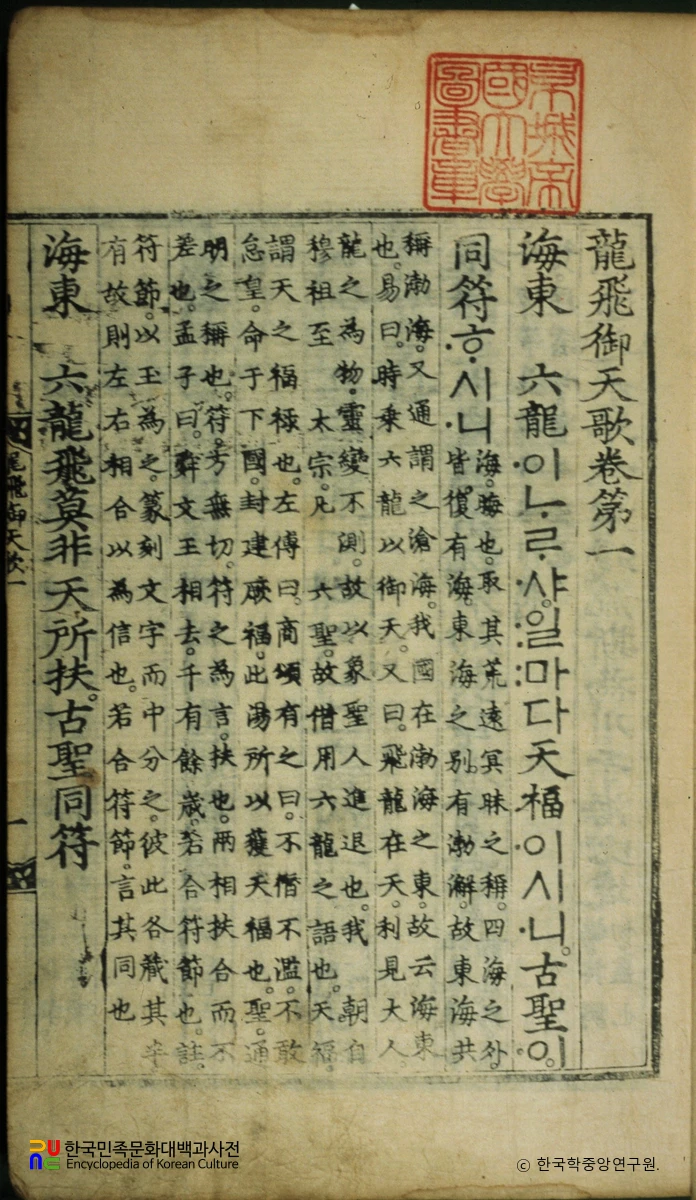 京城帝
國大學
圖書章
龍飛御天歌卷第一
海東 六龍·이ᄂᆞᄅᆞ·샤。:일:마다天福·이시·니。古聖·이。
同符·ᄒᆞ·시·니
海。晦也。取其荒遠冥昧之稱。四海之外。
皆復有海。東海之別。有渤澥。故東海共
稱渤海。又通謂之滄海。我國在渤海之東。故云海東
也。易曰。時乘六龍以御天。又曰。飛龍在天。利見大人。
龍之為物。靈變不測。故以象聖人進退也。我 朝自
穆祖至 太宗。凡 六聖。故借用六龍之語也。天福。
謂天之福極也。左傳曰。商頌有之曰。不僭不濫。不敢
怠皇。命于下國。封建厥福。此湯所以獲天福也。聖。通
明之稱也。符。方無切。符之為言。扶也。兩相扶合而不
差也。孟子曰。舜文王相去。千有餘歲。若合符節也。註。
符節。以玉為之。篆刻文字而中分之。彼此各藏其半
有故則左右相合以為信也。若合符節。言其同也
海東 六龍飛莫非天所扶。古聖同符
龍飛御天歌一
一
한국민족문화대백과사전
Encyclopedia of Korean Culture
© 한국학중앙연구원.